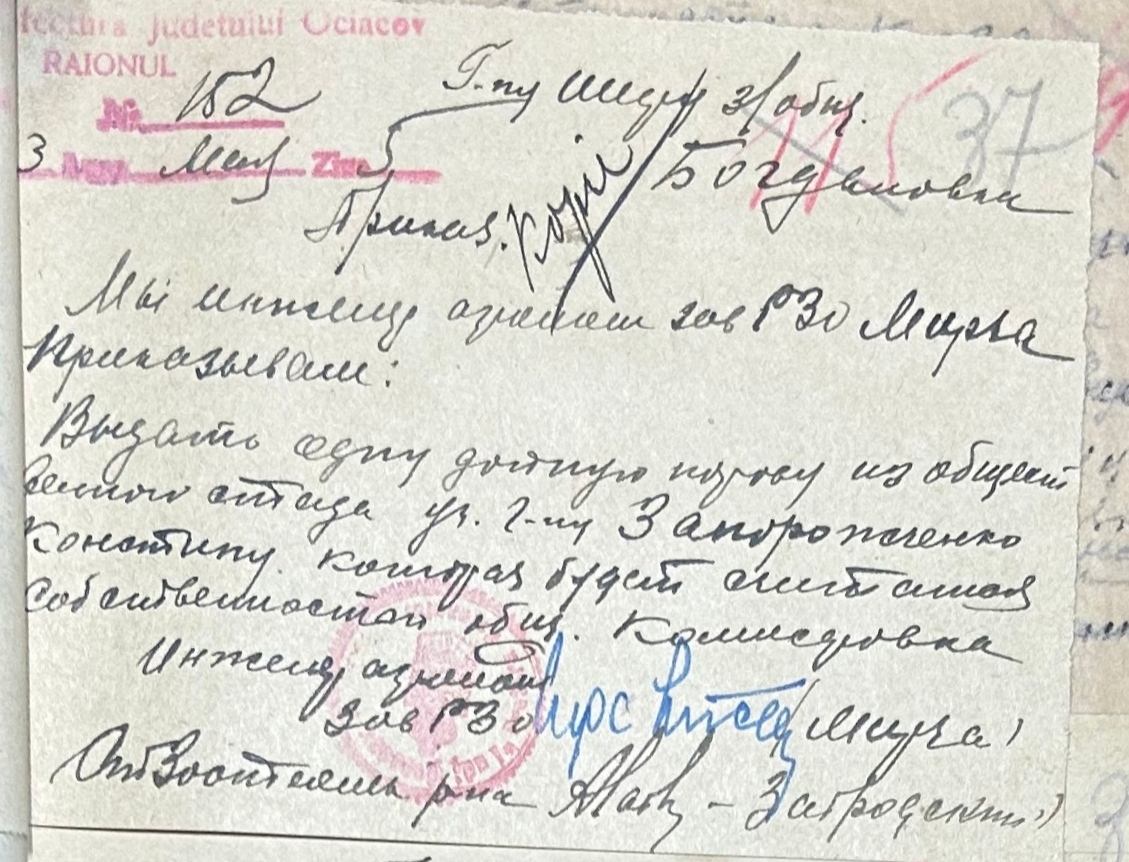 fectura Județului Ociacov
RAIONUL
No. 152
3 Luna Май Ziua
37
11
Г-ну Инжен з/общ.
Богдановка
Приказ.
Мы инженер агроном зав РЗО Мирча
Приказываем:
Выдать одну дойную корову из общест
венного стада г-ну Запорожченко
Константину. которая будет считаться
собственностей общ. Комисаровка
Инженер агроном
Зав РЗО (Мирча)
Зоотехник р-на – Загродский)